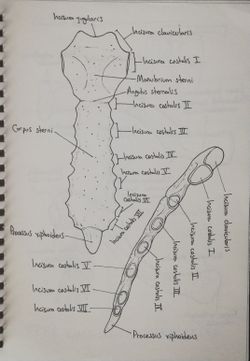 Incisura jugularis
Incisura clavicularis
Incisura costalis I
Manubrium sterni
Angulus sternalis
Incisura costalis II
Incisura costalis III
Corpus sterni
Incisura costalis IV
Incisura costalis V
Incisura costalis VI
Incisura costalis VII
Processus xiphoideus
Incisura clavicularis
Incisura costalis I
Incisura costalis II
Incisura costalis III
Incisura costalis IV
Incisura costalis V
Incisura costalis VI
Incisura costalis VII
Processus xiphoideus